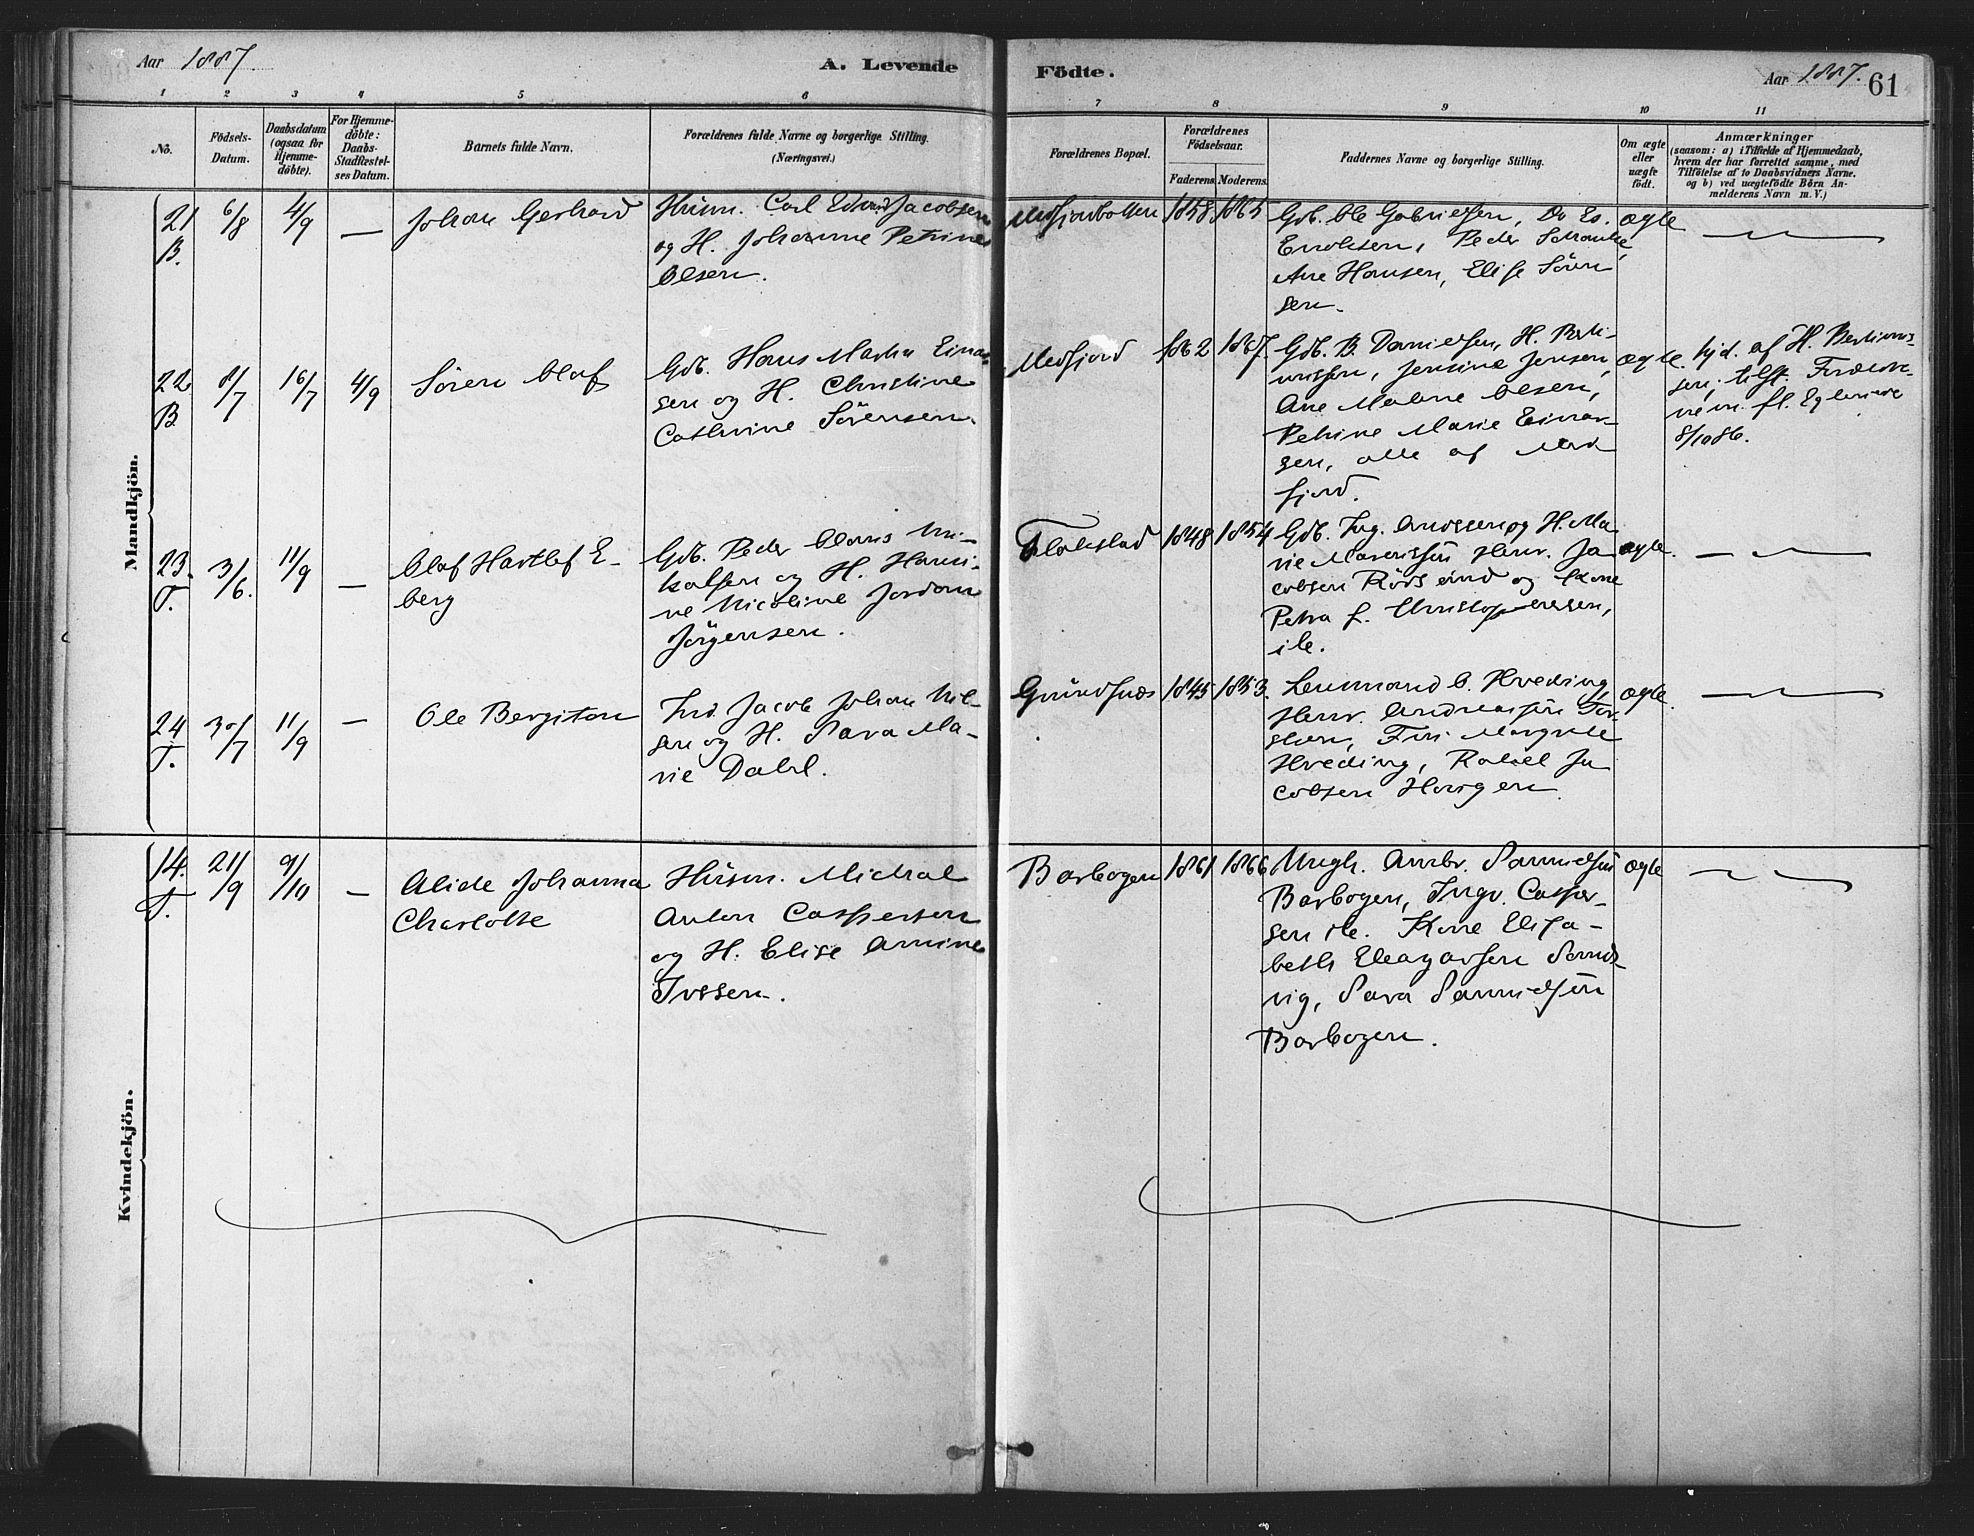 Aar 1887.
A. Levende
Födte.
Aar 1887.
61
1 2 3 4 5 6 7 8 9 10 11
No.
Födsels-
Datum.
Daabsdatum
(ogsaa for
Hjemme-
döbte).
For Hjemme-
döbte:
Daabs-
Stadfæstel-
ses Datum.
Barnets fulde Navn.
Forældrenes fulde Navne og borgerlige Stilling.
(Næringsvei.)
Forældrenes Bopæl.
Forældrenes
Födselsaar.
Faderens
Moderens
Faddernes Navne og borgerlige Stilling.
Om ægte
eller
uægte
födt.
Anmærkninger
(saasom: a) i Tilfælde af Hjemmedaab,
hvem der har forrettet samme, med
Tilföielse af to Daabsvidners Navne.
og b) ved uægtefödte Børn An-
melderens Navn m. V.)
Mandkjön.
21
B.
6/8
4/9
—
Johan Gerhard
Husm. Carl Edvard Jacobsen
og H. Johanne Petrine
Olsen.
Medfjordbotten
1858
1865
Gdb. Ole Gabrielsen, Do Es.
Enoksen, Peder Schanke,
Ane Hansen, Elise Sören-
sen.
ægte
22
B
8/7
16/7
4/9
Sören Olaf
Gdb. Hans Martin Einar-
sen og H. Christine
Cathrine Sörensen.
Medfjord
1862
1867.
Gdb. B. Danielsen, H. Berti-
nussen, Jensine Jensen,
Ane Malene Olsen,
Petrine Marie Einar-
sen, alle af Med
fjord.
ægte.
hjd. af H. Bertinus-
sen, tilst. Forældre-
ne
8/10 86.
23.
T.
3/6.
11/9
—
Olaf Hartlef E-
berg
Gdb. Peder Claus Mi-
kalsen og H. Hansi-
ne Nicoline Jordan
Jörgensen.
Flakstad
1848
1854
Gdb. Ing. Andssen og H. Ma-
rie
cobsen og Kone
Petra f.
ib.
ægte.
24
T.
30/7
11/9
—
Ole Bergiton
Ind. Jacob Johan Nil-
sen og H. Sara Ma-
rie Dahl.
Grundfnæs
1845
1853.
Lensmand O. Hveding,
Hveding, Rakel Ja
cobsen Haugen
ægte.
Kvindekjön.
14.
T.
21/9
9/10
—
Alide Johanna
Charlotte
Husm. Mickal
Anton Caspersen
og H. Elise Amine
Ivssen.
Barbogen
1861
1866
Ungk. Ambr. Samuelsen
Barbogen, Ingv. Casper-
sen ib. Kone Elisa-
beth Eleazarsen Sand-
vig, Sara Samuelsen
Barbogen.
ægte